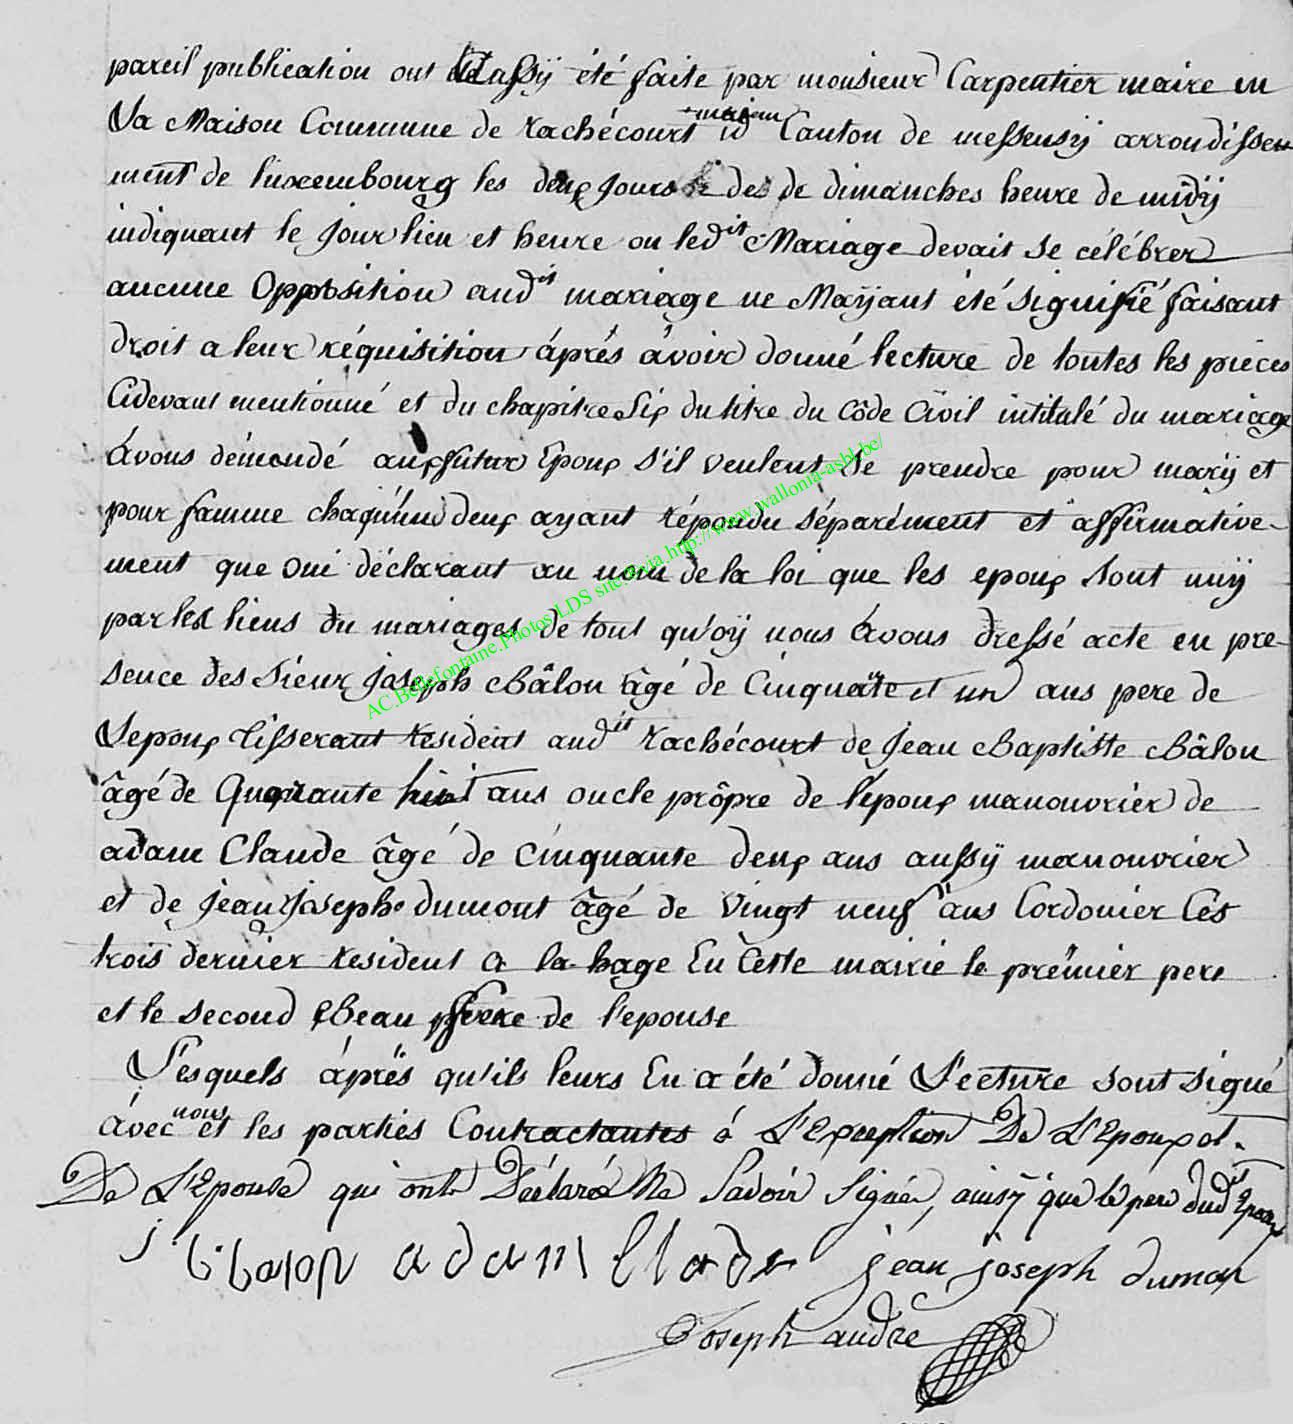 pareil publication ont aussÿ été faite par monsieur Carpentier maire en
La Maison Commune de Rachécourt id Canton de messensÿ arrondisse
ment de luxembourg les deux jours de dimanches heure de midÿ
indiquant le jour lieu et heure ou ledit Mariage devait se célébrer
aucune Opposition audit mariage ne Mayant été signifié faisant
droit a leur réquisition áprés ávoir donné lecture de toutes les piéces
Cidevant mentionné et du chapitre Six du titre du Côde Civil intitulé du mariage
ávons démandé aux futur Epoux s'il veulent se prendre pour marÿ et
pour famme chaqu'un deux ayant répondu séparément et affirmative-
ment que oui déclarant au nom de la loi que les epoux sont unÿ
par les liens du mariages de tout qu'oÿ nous ávons dressé acte en pre-
sence des Sieur Joseph Bâlon âgé de Cinquate et un ans pere de
Lepoux tisserant résident audit Rachécourt de Jean Baptiste Bâlon
âgé de Quarante huit ans oncle prôpre de lépoux manouvrier de
adam Claude âgé de Cinquante deux ans aussÿ manouvrier
et de Jean Joseph dumont âgé de Vingt neuf ans Cordonier Cés
trois dernier résident a la hage En Cette mairie le premier pere
et le second Beau frere de l'epouse
Lesquels áprës qu'ils leurs En a été donné Lecture sont signé
ávec nous et les partiés Contractantes á L'Exception De L'Epoux et
De L'Epouse qui ont Déclaré Ne Savoir Signer, ainsy que le pere dudt Epoux
J B Balon adam Clade jean joseph dumon
Joseph andre
AC.Bellefontaine.Photos LDS site via http://www.wallonia-asbl.be/